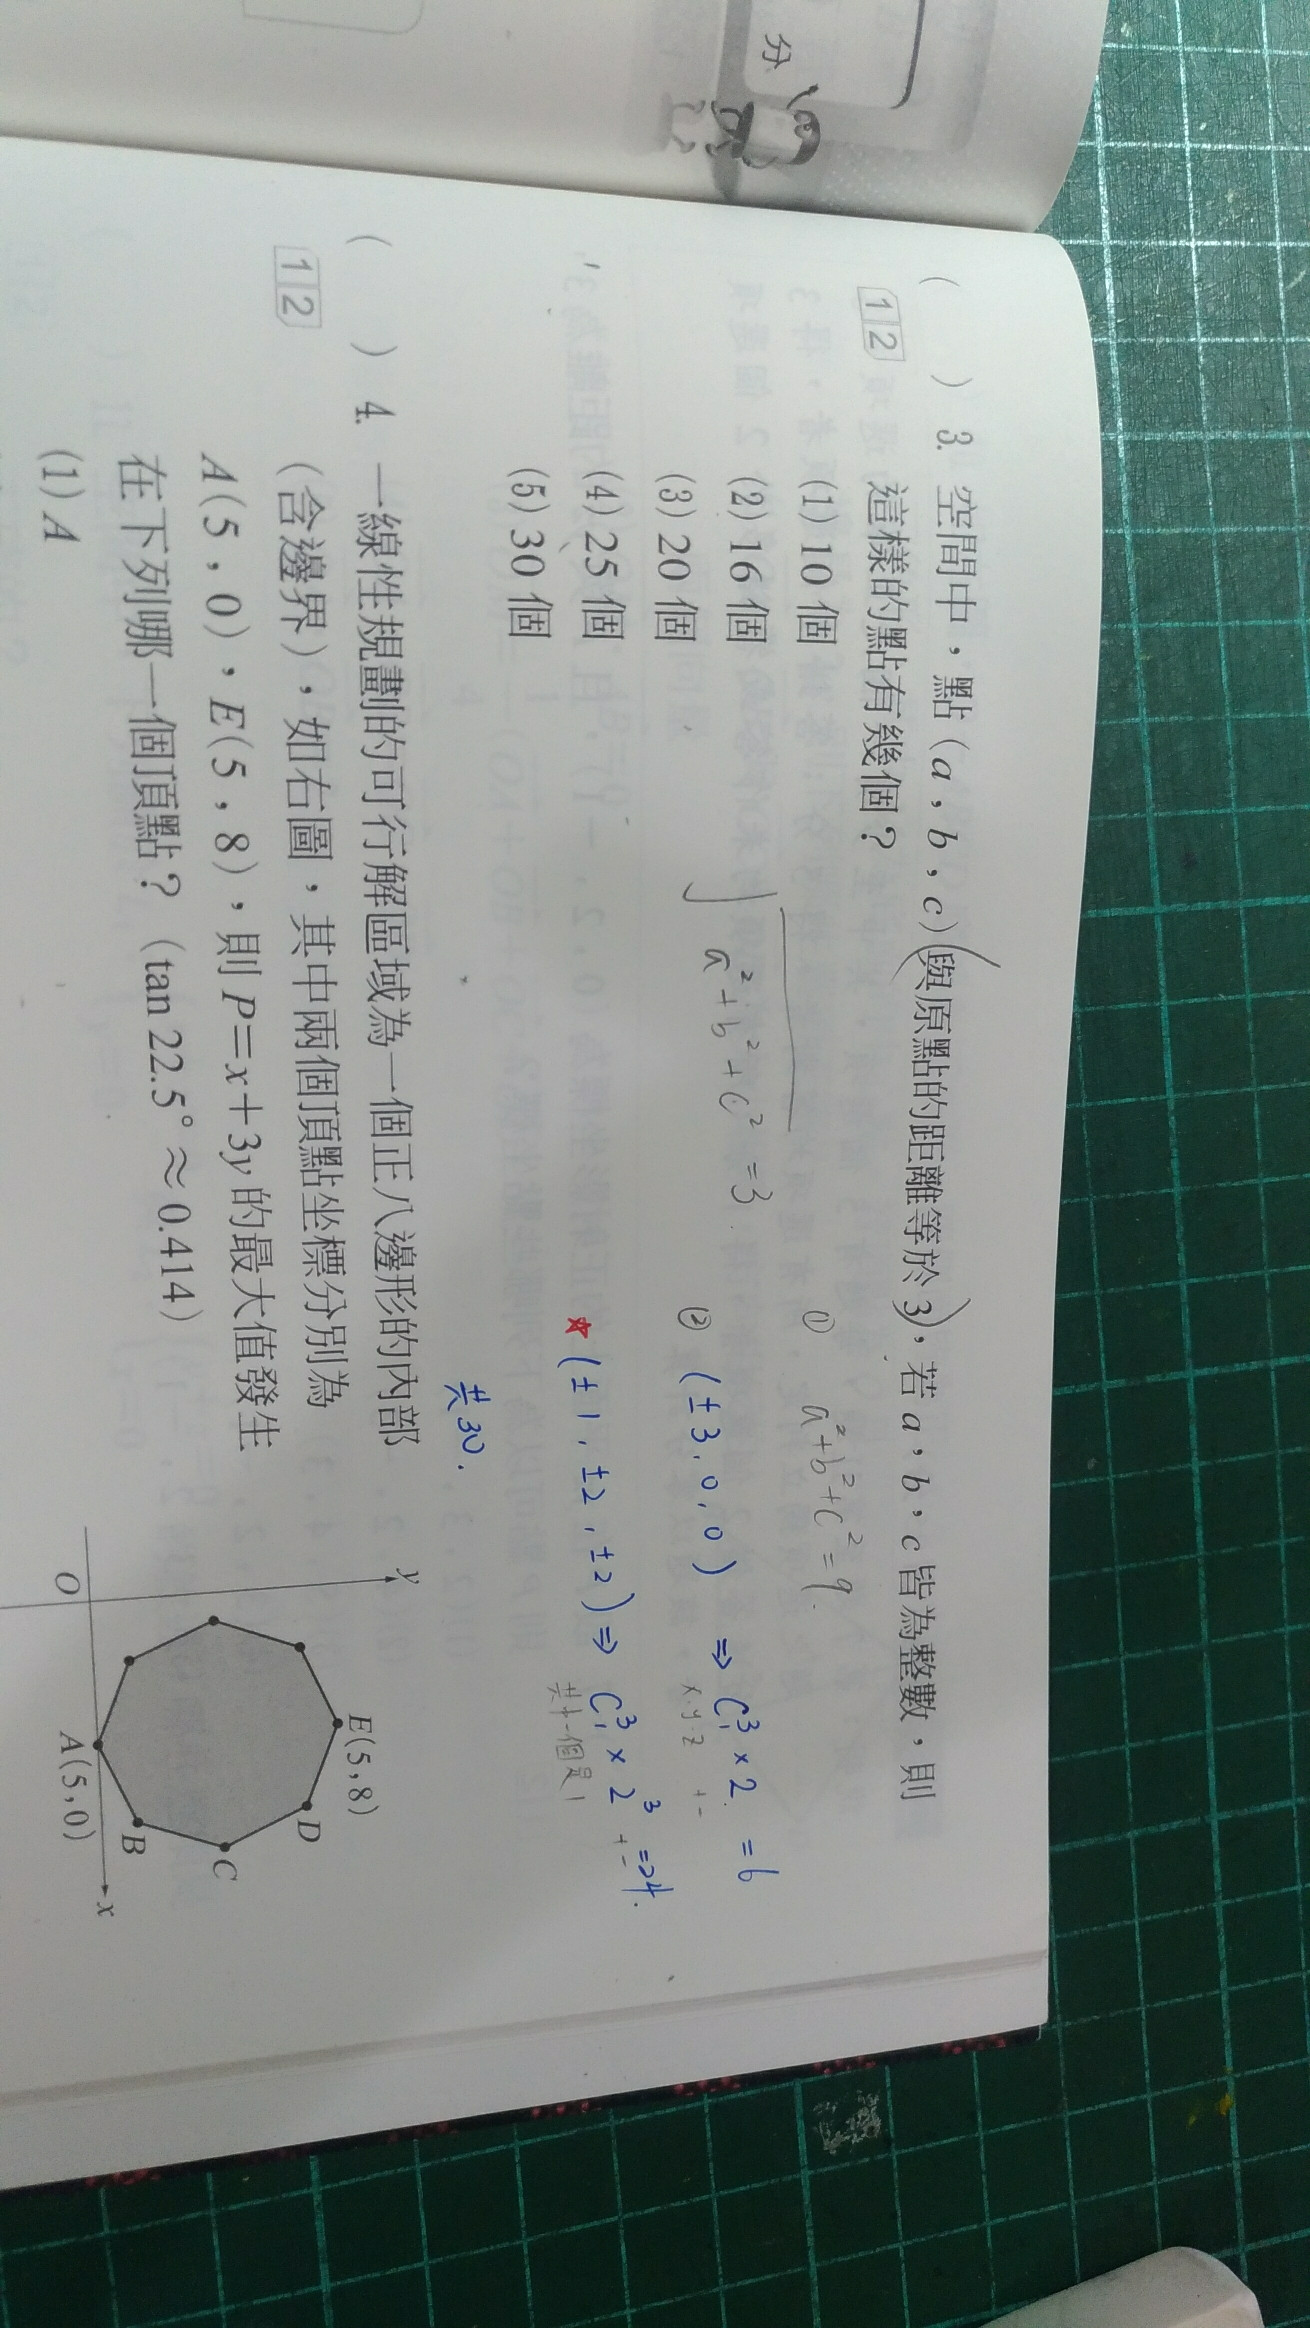 分
( ) 3. 空間中，點(a，b，c)與原點的距離等於3，若a，b，c皆為整數，則
1 2 這樣的點有幾個？
(1) 10 個
(2) 16 個
(3) 20 個
(4) 25 個
(5) 30 個
√a²+b²+c² =3
① a²+b²+c²=9.
② (±3,0,0) ⇒ C³₁×2 =6
x.y.z +-
★(±1,±2,±2)⇒ C³₁×2³=24.
其中一個是1 +-
共30.
( ) 4. 一線性規劃的可行解區域為一個正八邊形的內部
1 2 (含邊界)，如右圖，其中兩個頂點坐標分別為
A(5，0)，E(5，8)，則P=x+3y的最大值發生
在下列哪一個頂點？(tan 22.5°≈0.414)
(1) A
y
E(5,8)
D
C
B
O
A(5,0)
x